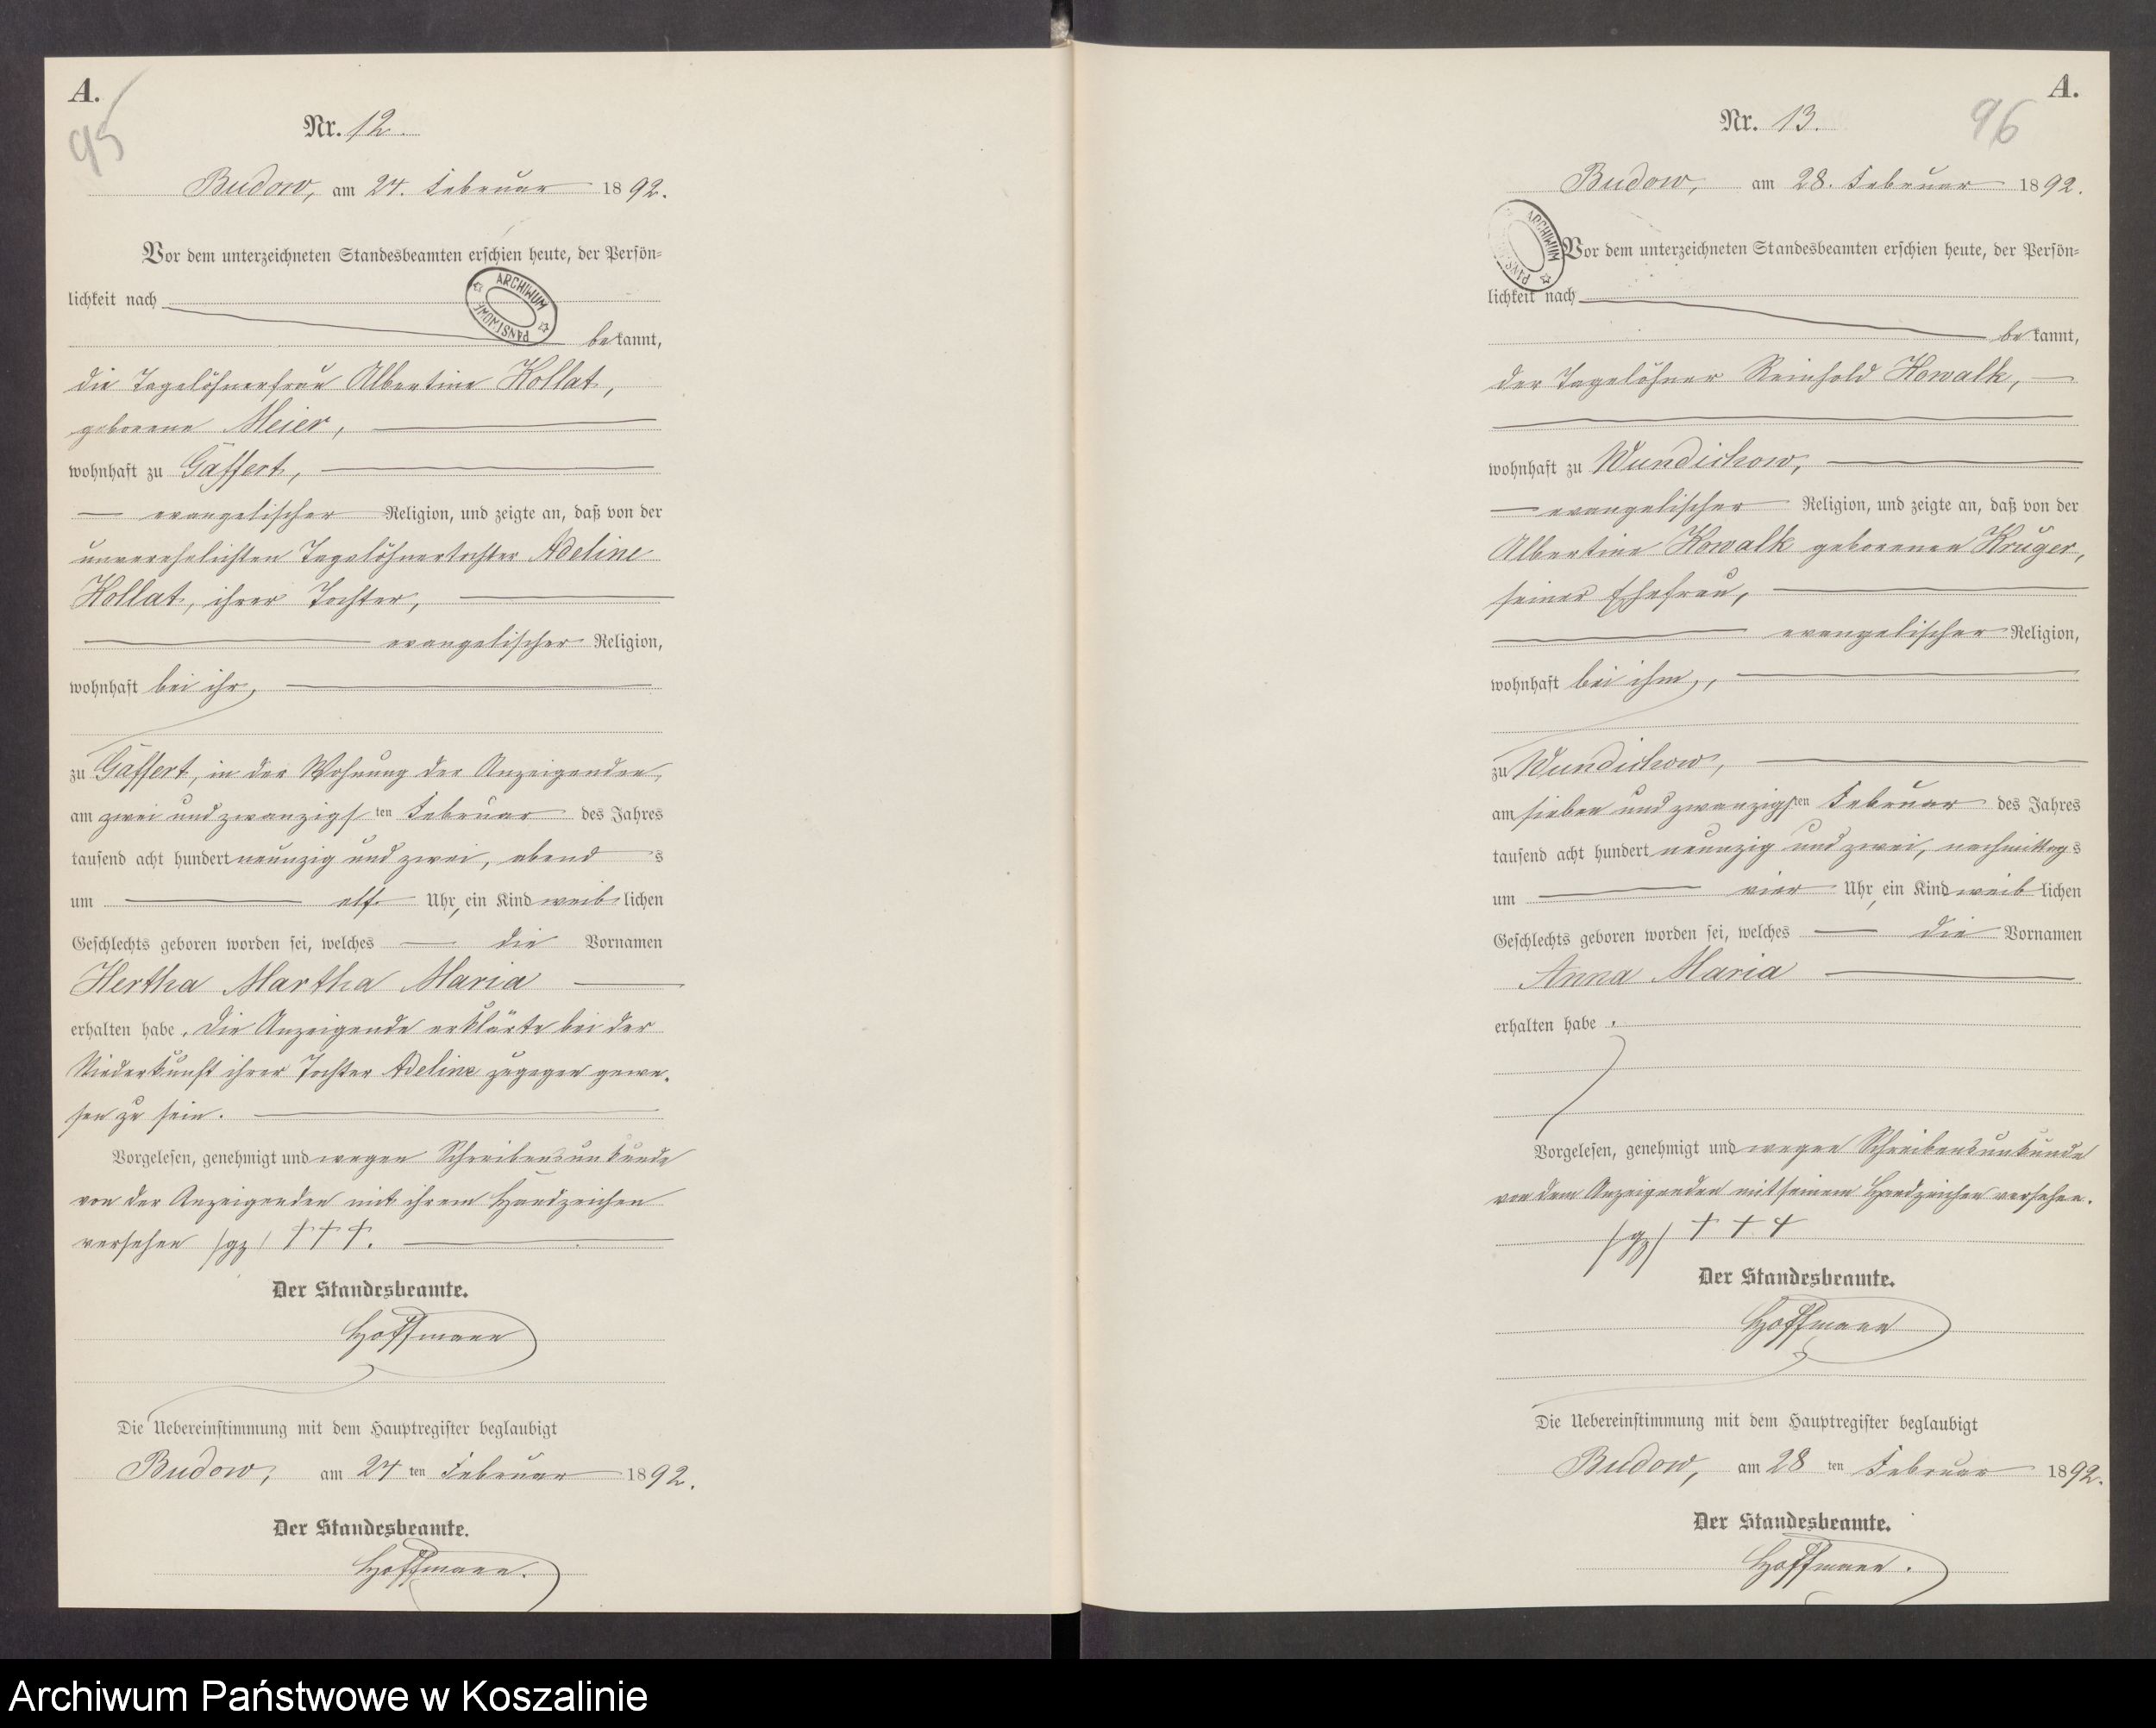 A.
95
Nr. 12.
Budow, am 24. Februar 1892.
Vor dem unterzeichneten Standesbeamten erschien heute, der Persön-
lichkeit nach
ARCHIWUM PAŃSTWOWE
bekannt,
die Tagelöhnerfrau Albertine Kollat,
geborene Meier,
wohnhaft zu Gaffert,
evangelischer Religion, und zeigte an, daß von der
unverehelichten Tagelöhnertochter Adeline
Kollat, ihrer Tochter,
evangelischer Religion,
wohnhaft bei ihr,
zu Gaffert, in der Wohnung der Anzeigenden,
am zwei und zwanzigsten Februar des Jahres
tausend acht hundert neunzig und zwei, abends
um elf Uhr, ein Kind weiblichen
Geschlechts geboren worden sei, welches die Vornamen
Hertha Martha Maria
erhalten habe. Die Anzeigende erklärte bei der
Niederkunft ihrer Tochter Adeline zugegen gewe-
sen zu sein.
Vorgelesen, genehmigt und wegen Schreibensunkunde
von der Anzeigenden mit ihrem Handzeichen
versehen /gz/ +++.
Der Standesbeamte.
Hoffmann
Die Uebereinstimmung mit dem Hauptregister beglaubigt
Budow, am 24 ten Februar 1892.
Der Standesbeamte.
Hoffmann.
A.
96
Nr. 13.
Budow, am 28. Februar 1892.
ARCHIWUM PAŃSTWOWE
Vor dem unterzeichneten Standesbeamten erschien heute, der Persön-
lichkeit nach
bekannt,
der Tagelöhner Reinhold Kowalk,
wohnhaft zu Wundichow,
evangelischer Religion, und zeigte an, daß von der
Albertine Kowalk geborenen Krüger,
seiner Ehefrau,
evangelischer Religion,
wohnhaft bei ihm,
zu Wundichow,
am sieben und zwanzigsten Februar des Jahres
tausend acht hundert neunzig und zwei, nachmittags
um vier Uhr, ein Kind weiblichen
Geschlechts geboren worden sei, welches die Vornamen
Anna Maria
erhalten habe.
Vorgelesen, genehmigt und wegen Schreibensunkunde
von dem Anzeigenden mit seinem Handzeichen versehen.
/gz/ + + +
Der Standesbeamte.
Hoffmann
Die Uebereinstimmung mit dem Hauptregister beglaubigt
Budow, am 28 ten Februar 1892.
Der Standesbeamte.
Hoffmann.
Archiwum Państwowe w Koszalinie